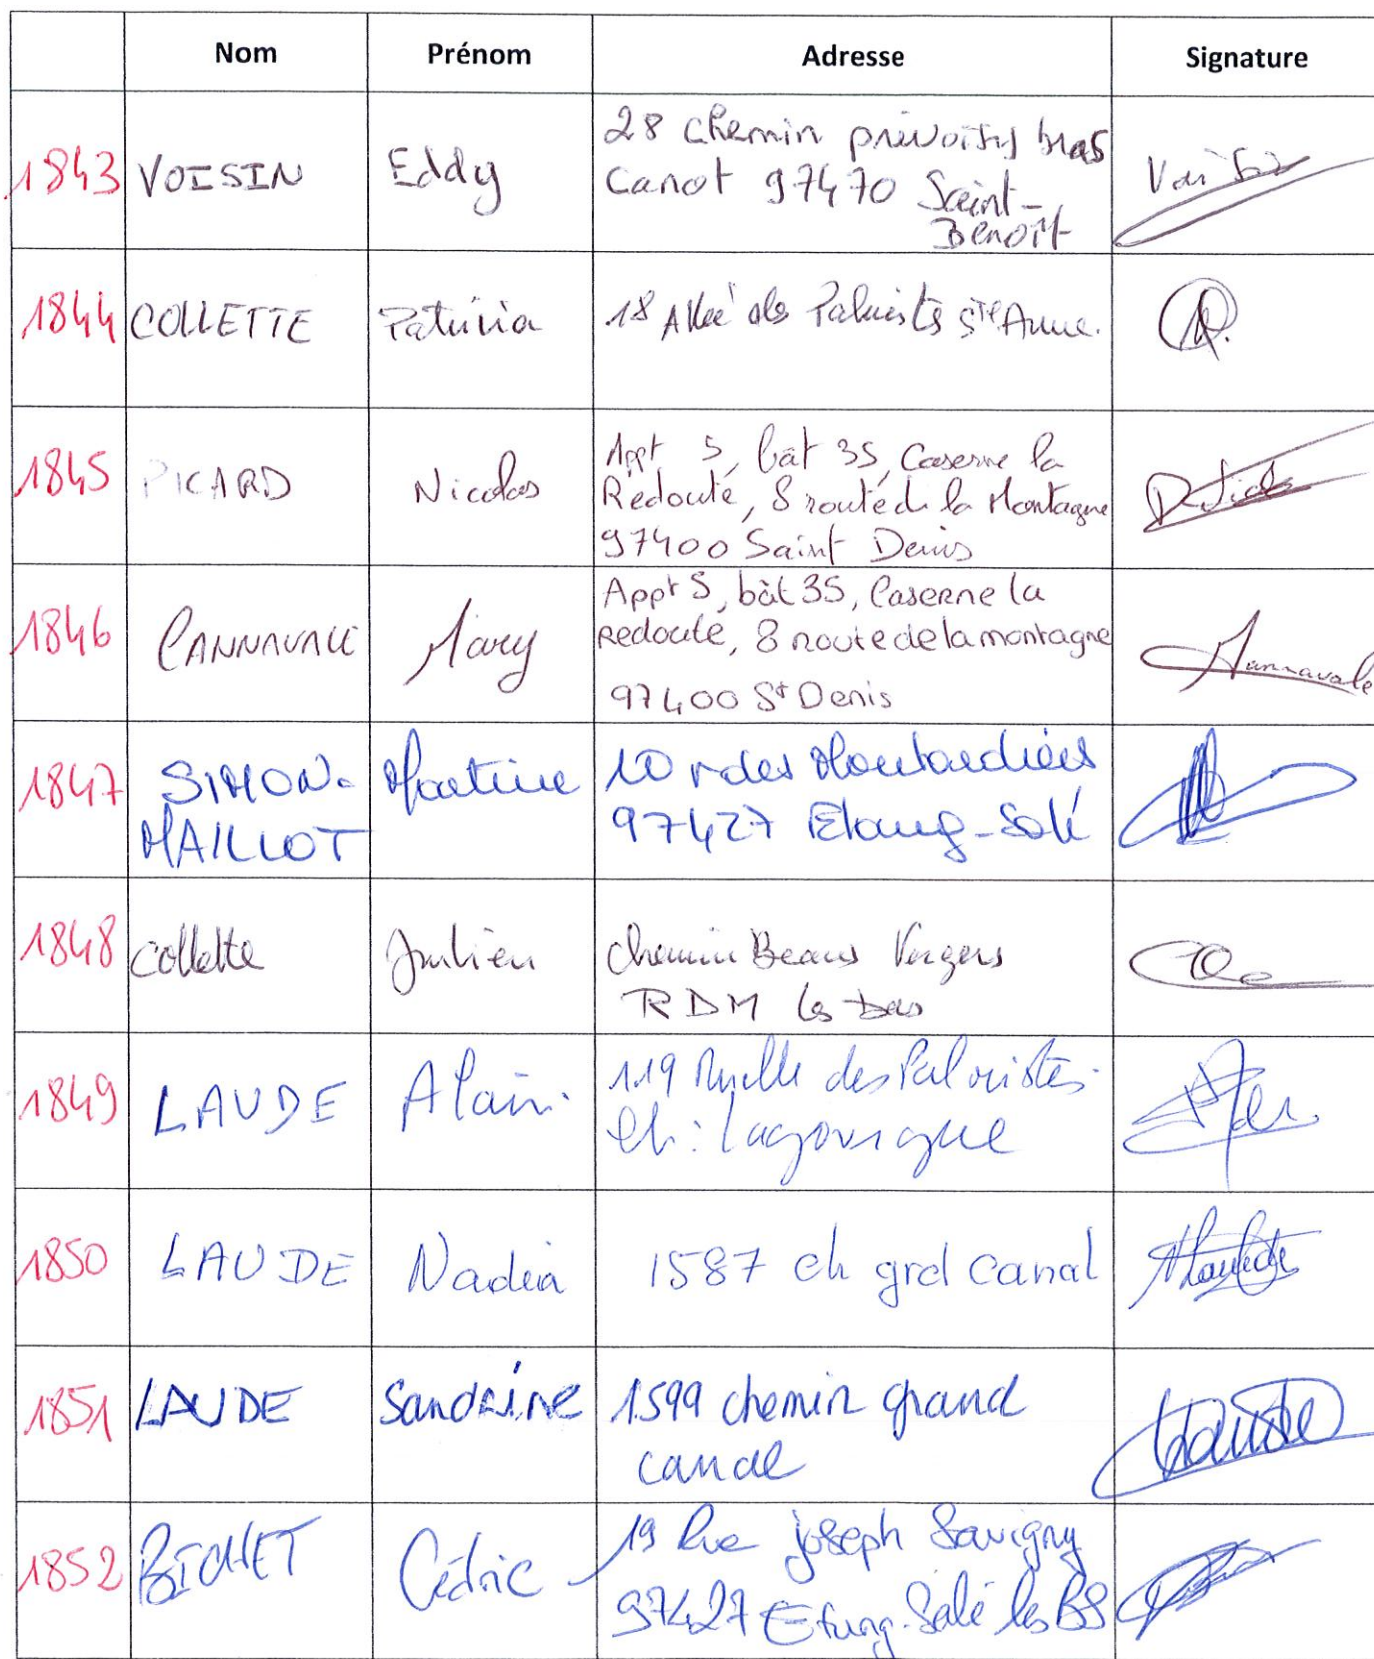 Nom Prénom Adresse Signature
1843 VOISIN Eddy 28 Chemin bras
Canot 97470 Saint-
Benoit
1844 COLLETTE Patricia 18 Allée des Palmistes Ste Anne.
1845 PICARD Nicolas Appt 5, bat 35, Caserne la
Redoute, 8 route de la Montagne
97400 Saint Denis
1846 CANNAVALE Mary Appt 5, bât 35, Caserne la
Redoute, 8 route de la montagne Cannavale
97400 St Denis
1847 SIMON- Martine 10 r des
MAILLOT 97427 Etang-Salé
1848 Collette Julien chemin Beaux Vergers
RDM les bas
1849 LAUDE Alain. 119 Ruelle des
ch: Lagourgue
1850 LAUDE Nadia 1587 ch grd Canal
1851 LAUDE Sandrine 1599 chemin grand Laude
canal
1852 BICHET Cédric 19 Rue joseph Savigny
97427 Etang-Salé les BS